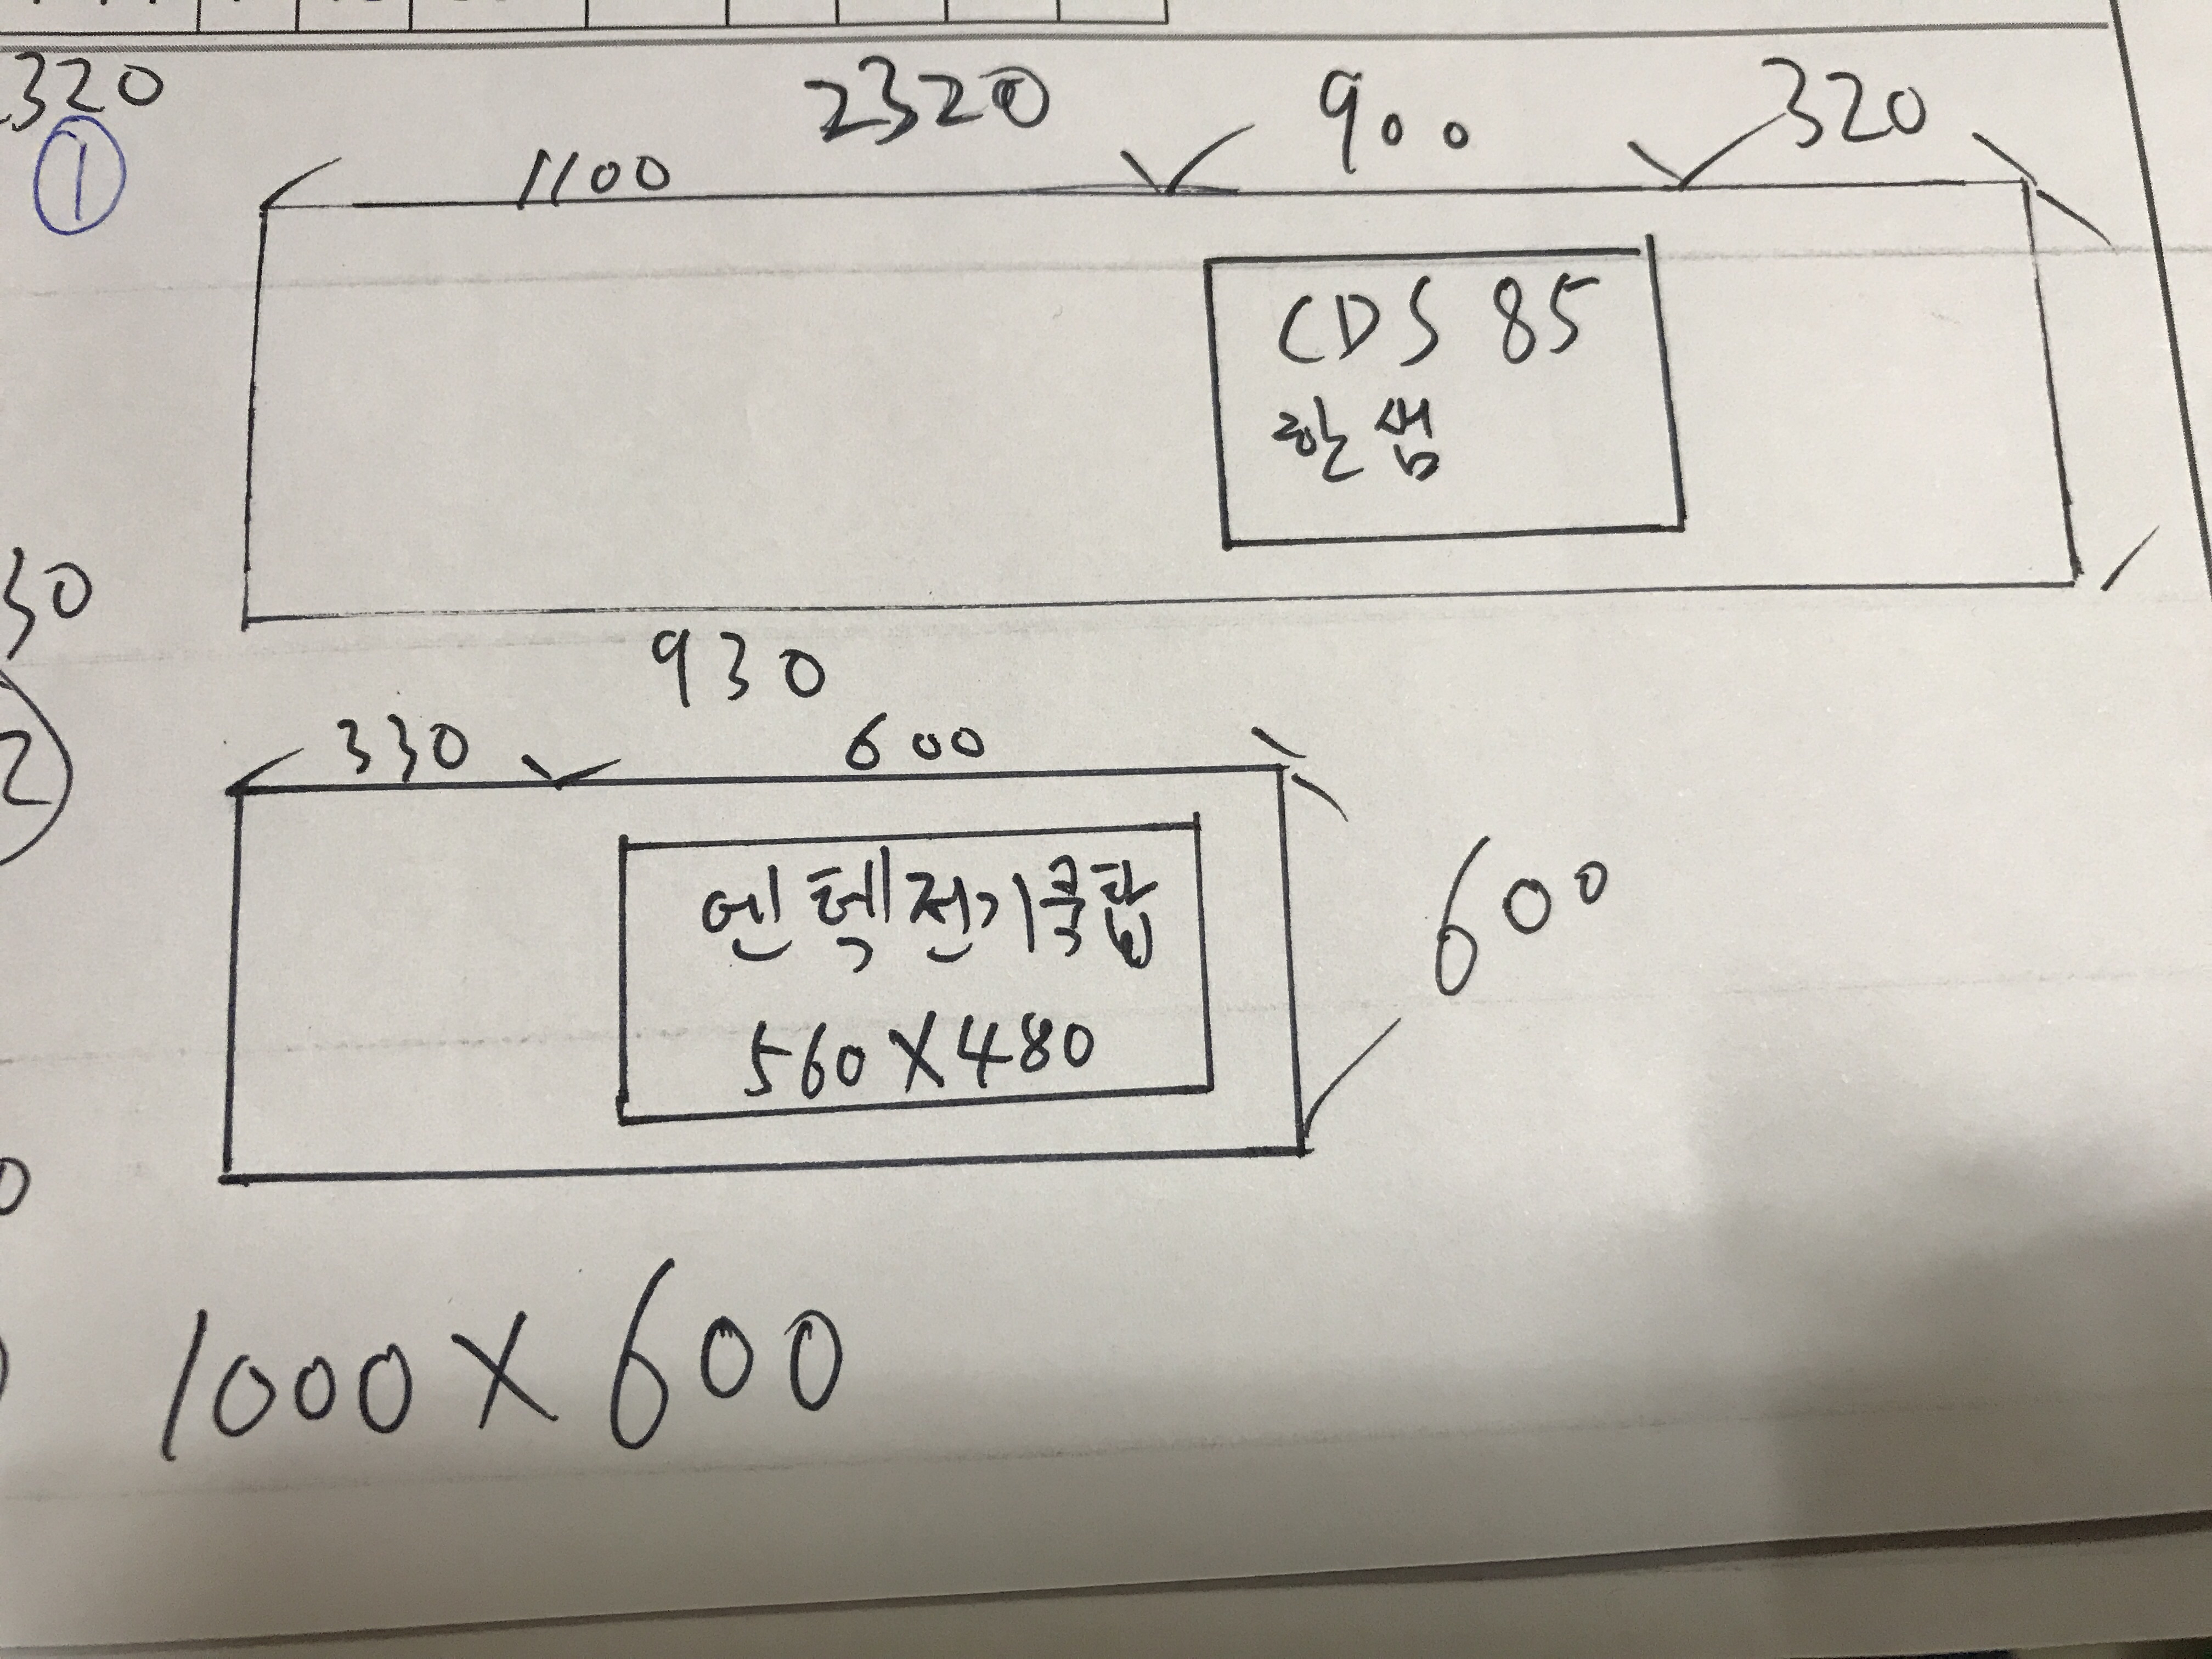 320
2320
900
320
①
1100
CDS 85
한샘
30
930
330
600
2
엔텍전기쿡탑
560X480
600
0
1000X600